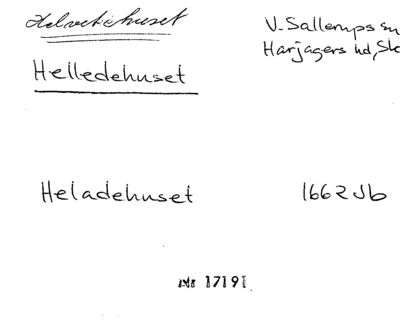 Helvetiehuset
V. Sallerups sn
Harjagers hd, Sk
Helledehuset
Heladehuset 1662 Jb
Nr 17191